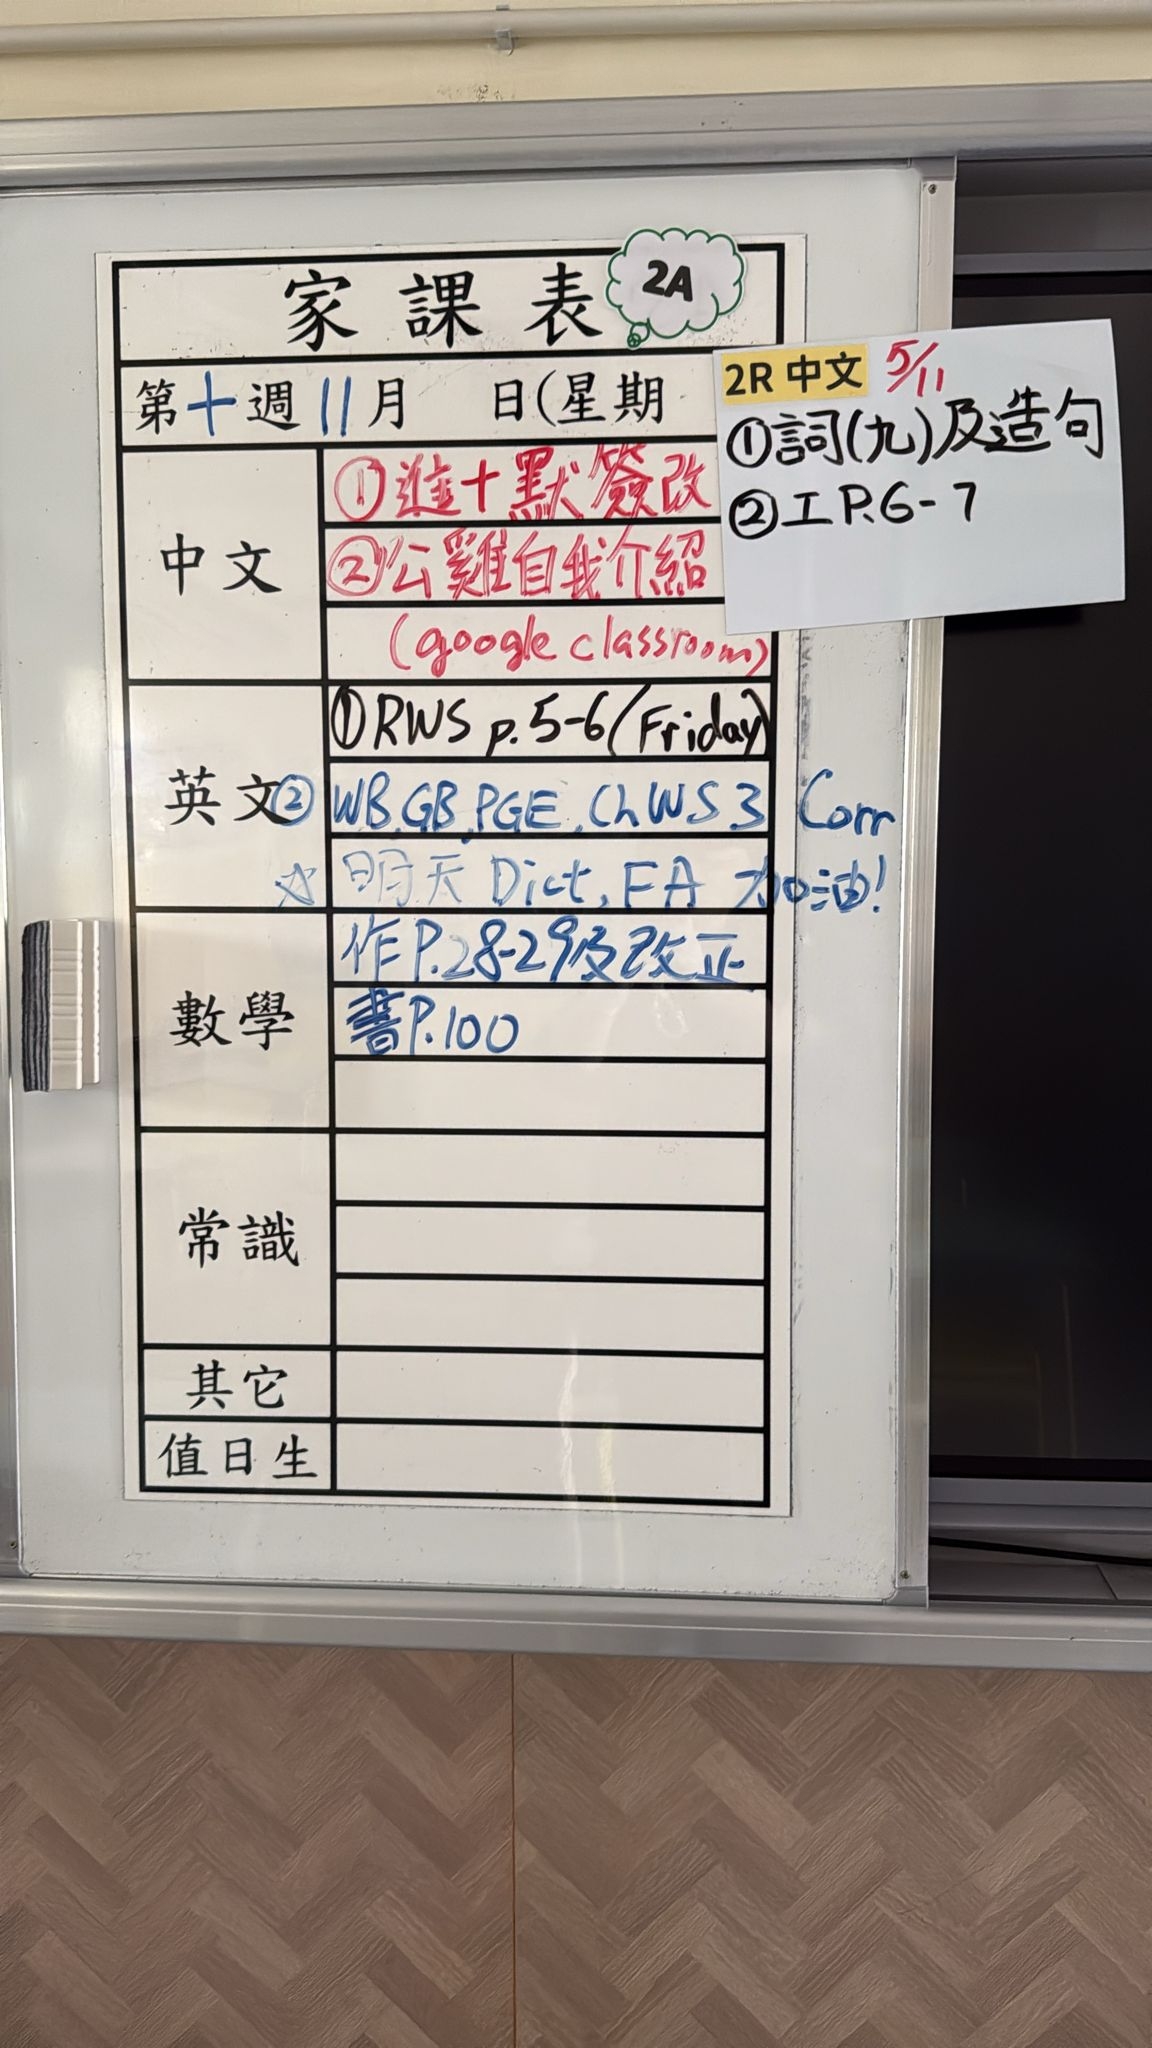 家課表 2A
第十週11月 日(星期
2R 中文 5/11
①詞(九)及造句
②工P.6-7
中文
①進十默簽改
②公雞自我介紹
(google classroom)
英文
①RWS p.5-6 (Friday)
② WB, GB, PGE, Ch WS 3 Corr
☆ 明天 Dict, FA 加油!
數學
作P.28-29及改正
書P.100
常識
其它
值日生